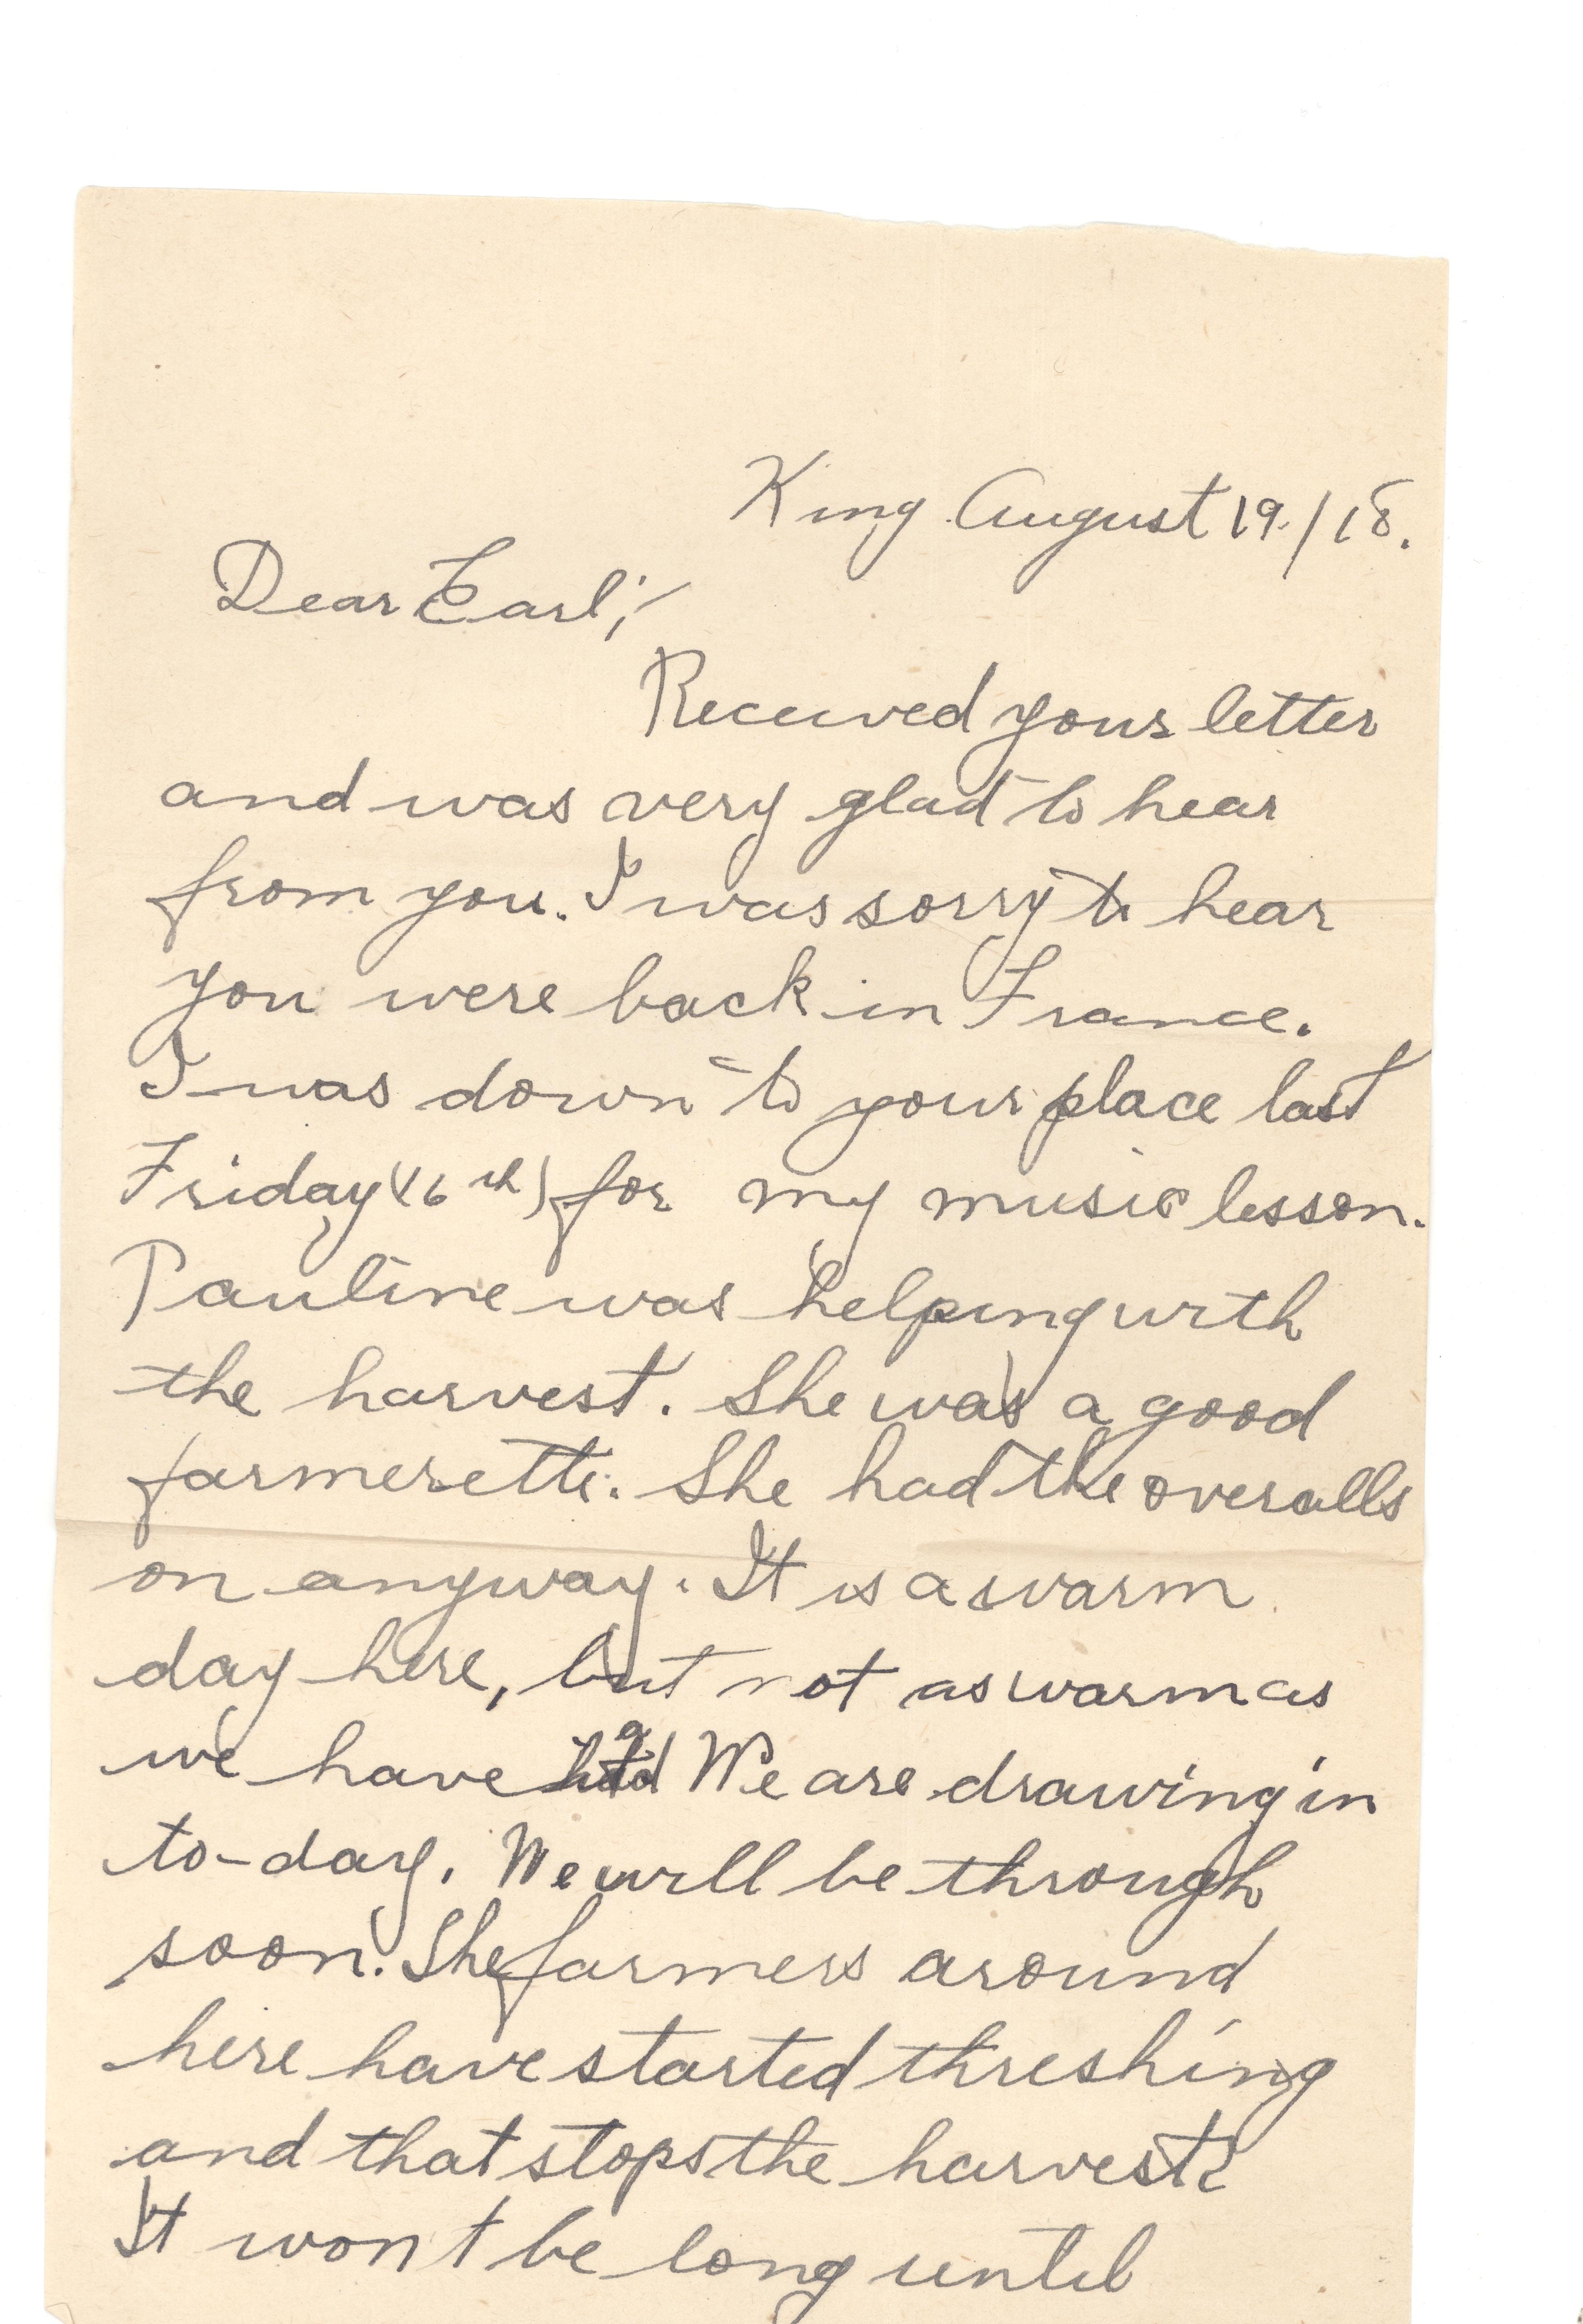 King August 19./18.
Dear Earl;-
Received your letter
and was very glad to hear
from you. I was sorry to hear
you were back in France.
I was down to your place last
Friday (16th) for my music lesson.
Pauline was helping with
the harvest. She was a good
farmerette. She had the overalls
on anyway. It is a warm
day here, but not as warm as
we have had We are drawing in
to-day. We will be through
soon. The farmers around
here have started threshing
and that stops the harvest.
It won't be long until